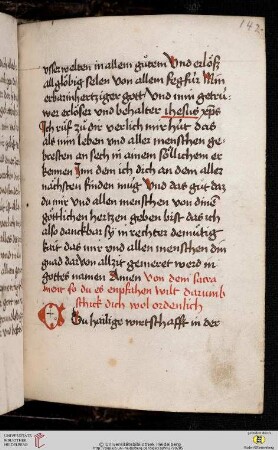 142
vsserwelten in allem gůtem Vnd erlöß
all glöbig selen von allem fegfür Min
erbarmhertziger gott Vnd min getrü
wer erlöser vnd behalter Jhesus xp̄s
Ich rüff zů dir verlich mir hüt das
als min leben vnd aller menschen ge
bresten an sech in ainem söllichem er
kennen Jnn dem ich dich an dem aller
nächsten finden müg Vnd das gůt daz
du mir vnd allen menschen von dinē
göttlichen hertzen geben bist das ich
also danckbar sÿ in rechter demůtig
kait das mir vnd allen menschen din
gnad dar von allzit gemeret werd in
gottes namen Amen Von dem sacra
ment so du es enpfahen wilt darumb
schick dich wol ordenlich
Du hailige wirtschafft in der
UNIVERSITÄTS-
BIBLIOTHEK
HEIDELBERG
© Universitätsbibliothek Heidelberg